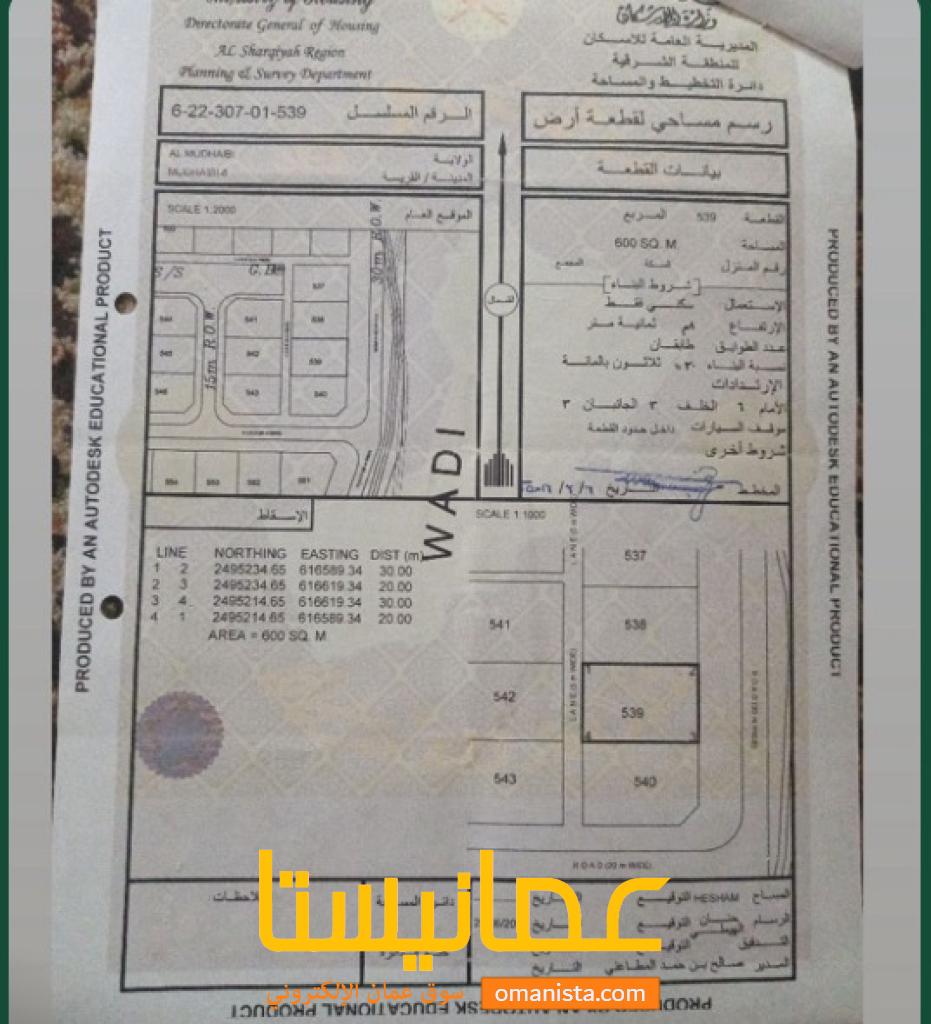 Ministry of Housing
Directorate General of Housing
AL Sharqiyah Region
Planning & Survey Department
وزارة الإسكان
المديرية العامة للاسكان
للمنطقة الشرقية
دائرة التخطيط والمساحة
6-22-307-01-539 الرقم المسلسل
رسم مساحي لقطعة أرض
AL MUDHAIBI الولاية
المدينة / القرية
بيانات القطعة
SCALE 1:2000 الموقع العام
القطعة 539 المربع
المساحة 600 SQ. M
رقم المنزل السكة المجمع
شروط البناء
الاستعمال سكني فقط
الإرتفاع ٨م ثمانية متر
عدد الطوابق طابقان
نسبة البناء ٣٠% ثلاثون بالمائة
الإرتدادات
الأمام ٦ الخلف ٣ الجانبان ٣
موقف السيارات داخل حدود القطعة
شروط أخرى
المخطط التاريخ
الشمال
S/S
30m R.O.W
15m R.O.W
537
544 541 538
545 542 539
546 543 540
554 553 552 551
WADI
الإسقاط
LINE NORTHING EASTING DIST (m)
1 2 2495234.65 616589.34 30.00
2 3 2495234.65 616619.34 20.00
3 4 2495214.65 616619.34 30.00
4 1 2495214.65 616589.34 20.00
AREA = 600 SQ. M
SCALE 1:1000
LANE (5 m WIDE)
537
541 538
LANE (5 m WIDE)
1 2
542 539
4 3
543 540
ROAD (20 m WIDE)
ROAD (20 m WIDE)
المساح HESHAM التوقيع التاريخ
الرسام التوقيع التاريخ
التدقيق التوقيع
المدير صالح بن حمد المطاعني التاريخ
PRODUCED BY AN AUTODESK EDUCATIONAL PRODUCT
PRODUCED BY AN AUTODESK EDUCATIONAL PRODUCT
PRODUCED BY AN AUTODESK EDUCATIONAL PRODUCT
عمانيستا
سوق عمان الإلكتروني
omanista.com